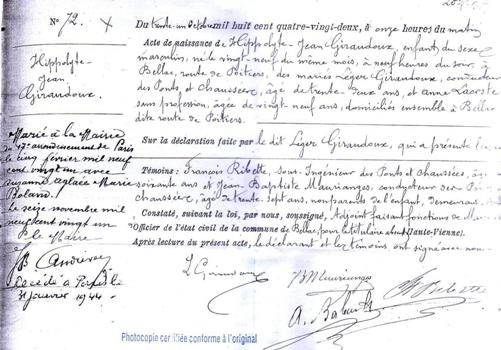 N° 72.
Hippolyte-
Jean
Giraudoux.
Du trente-un Octobre mil huit cent quatre-vingt-deux, à onze heures du matin
Acte de naissance de Hippolyte-Jean Giraudoux, enfant du sexe
masculin, né le vingt-neuf du même mois, à neuf heures du soir, à
Bellac, route de Poitiers, des mariés Léger Giraudoux, conducteur
des Ponts et Chaussées, âgé de trente-deux ans, et Anne Lacoste
sans profession, âgée de vingt-neuf ans, domiciliés ensemble à Bellac
dite route de Poitiers.
Sur la déclaration faite par le dit Léger Giraudoux, qui a présenté
Témoins: François Ribette, sous-Ingénieur des Ponts et chaussées, âgé
soixante ans et Jean Baptiste Maurianges, conducteur des Ponts
chaussées, âgé de trente-sept ans, non parents de l'enfant, demeurant
Constaté, suivant la loi, par nous, soussigné, Adjoint faisant fonctions de Maire
Officier de l'état civil de la commune de Bellac, pour le titulaire absent (Haute-Vienne).
Après lecture du présent acte, le déclarant et les témoins ont signé avec nous
Marié à la Mairie
du 17e arrondissement de Paris
le cinq février mil neuf
cent vingt un avec
Suzanne Aglaée Marie
Boland.
le seize novembre mil
neuf cent vingt un
Le Maire
Décédé à Paris le
31 janvier 1944
L Giraudoux
Photocopie certifiée conforme à l'original